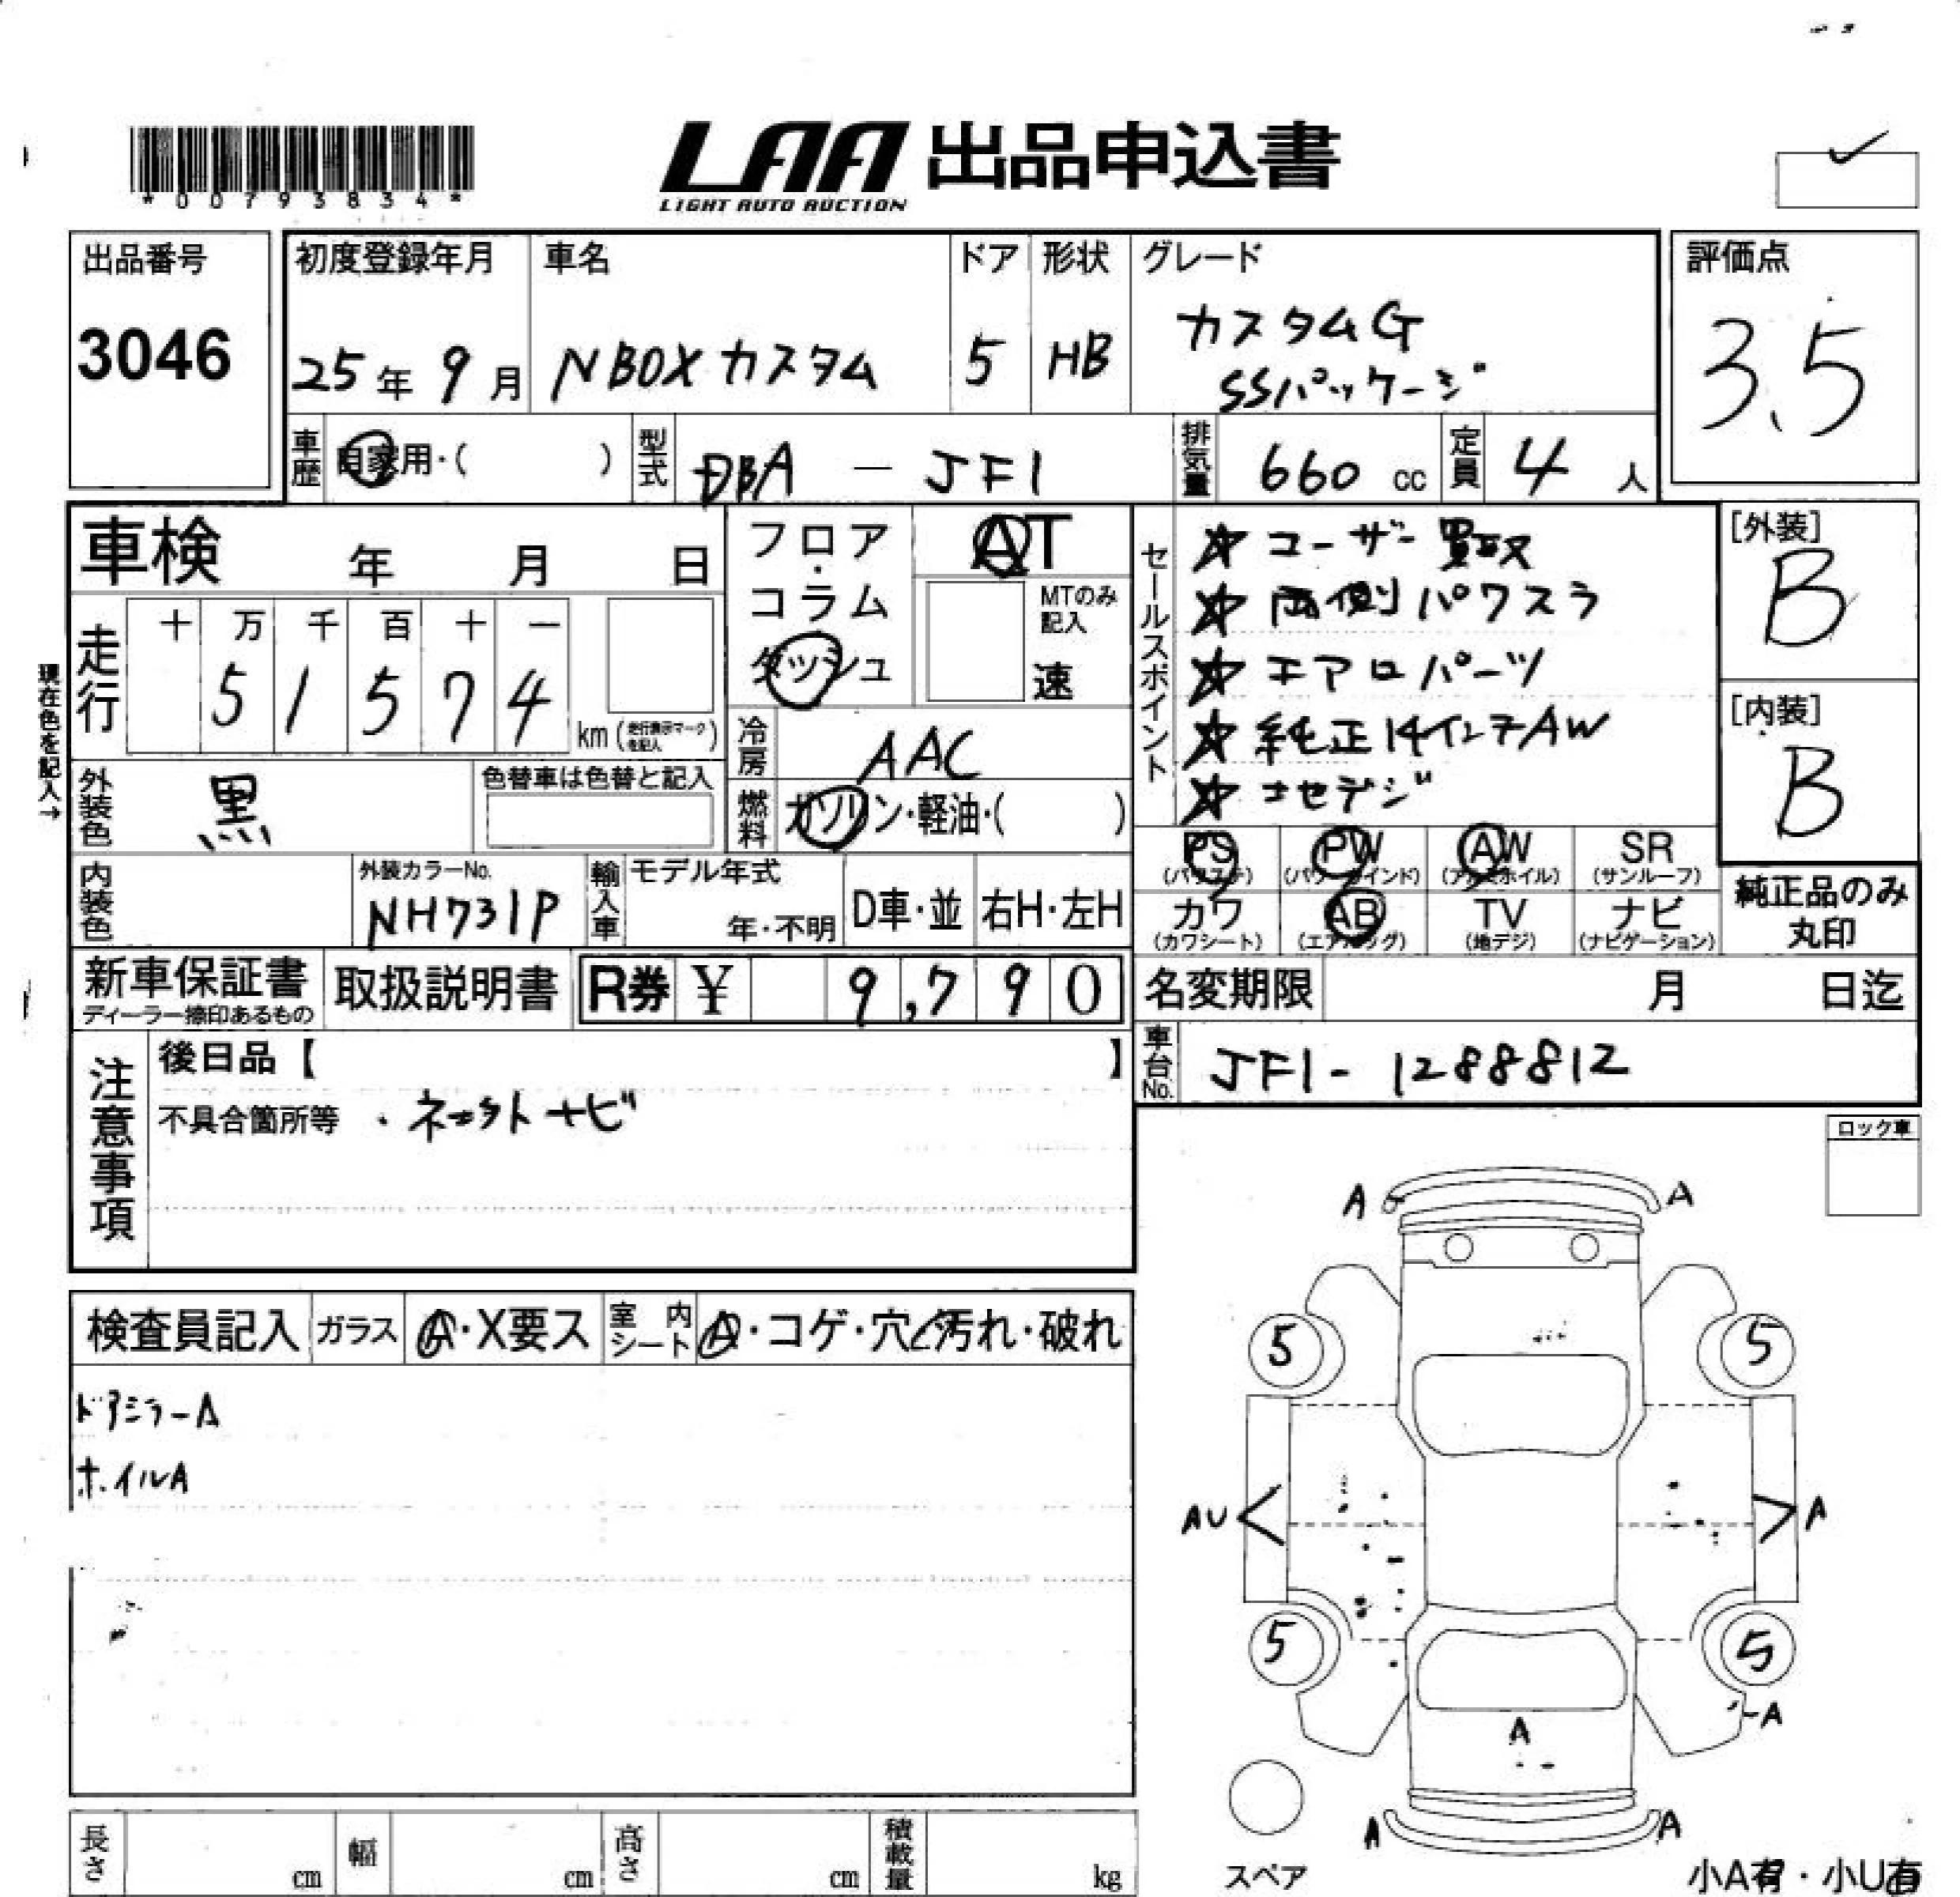 *00793834*
LAA 出品申込書
LIGHT AUTO AUCTION
出品番号
3046
初度登録年月
25年 9月
車名
NBOXカスタム
ドア
5
形状
HB
グレード
カスタムG
SSパッケージ
評価点
3.5
車歴
自家用・( )
型式
DBA - JF1
排気量
660 cc
定員
4 人
車検 年 月 日
フロア
・
コラム
ダッシュ
AT
MTのみ
記入
速
セールスポイント
☆ ユーザー買取
☆ 両側パワスラ
☆ エアロパーツ
☆ 純正14インチAW
[外装]
B
[内装]
B
現在色を記入→
走行
十 万 千 百 十 一
5 1 5 7 4
km(走行表示マークを記入)
冷房
AAC
外装色
黒
色替車は色替と記入
燃料
ガソリン・軽油・( )
PS
(パワステ)
PW
(パワーウインド)
AW
(アルミホイル)
SR
(サンルーフ)
カワ
(カワシート)
AB
(エアバッグ)
TV
(地デジ)
ナビ
(ナビゲーション)
純正品のみ
丸印
内装色
外装カラーNo.
NH731P
輸入車
モデル年式
年・不明
D車・並
右H・左H
新車保証書
ディーラー捺印あるもの
取扱説明書
R券 ¥ 9,790
名変期限 月 日迄
車台No.
JF1-1288812
注意事項
後日品【 】
不具合箇所等 ・ネットナビ
ロック車
検査員記入
ガラス
A・X要ス
室内シート
A・コゲ・穴・汚れ・破れ
ドアミラーA
ホイルA
A A
5 5
AU A
5 5
A
A
A A
スペア
小A有・小U有
長さ cm
幅 cm
高さ cm
積載量 kg